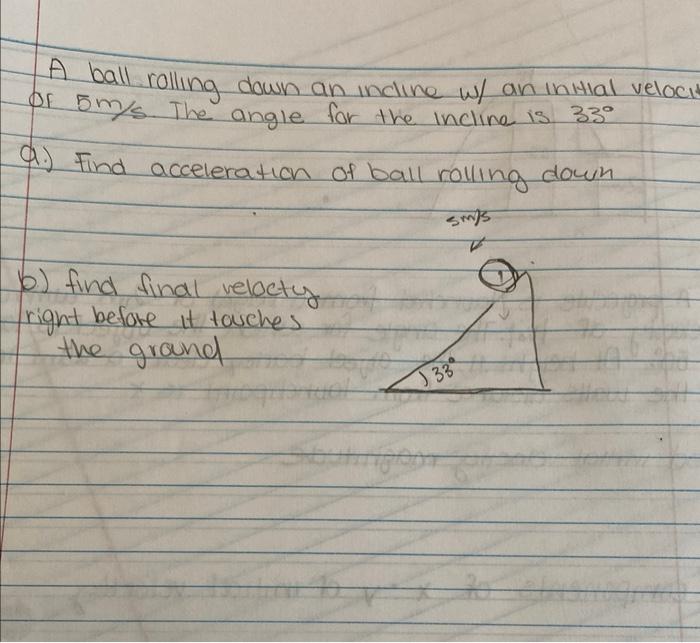 A ball rolling down an incline w/ an initial veloci
of 5m/s. The angle for the incline is 33°
a.) Find acceleration of ball rolling down
5m/s
b) find final velocty
right before it touches
the ground
33°